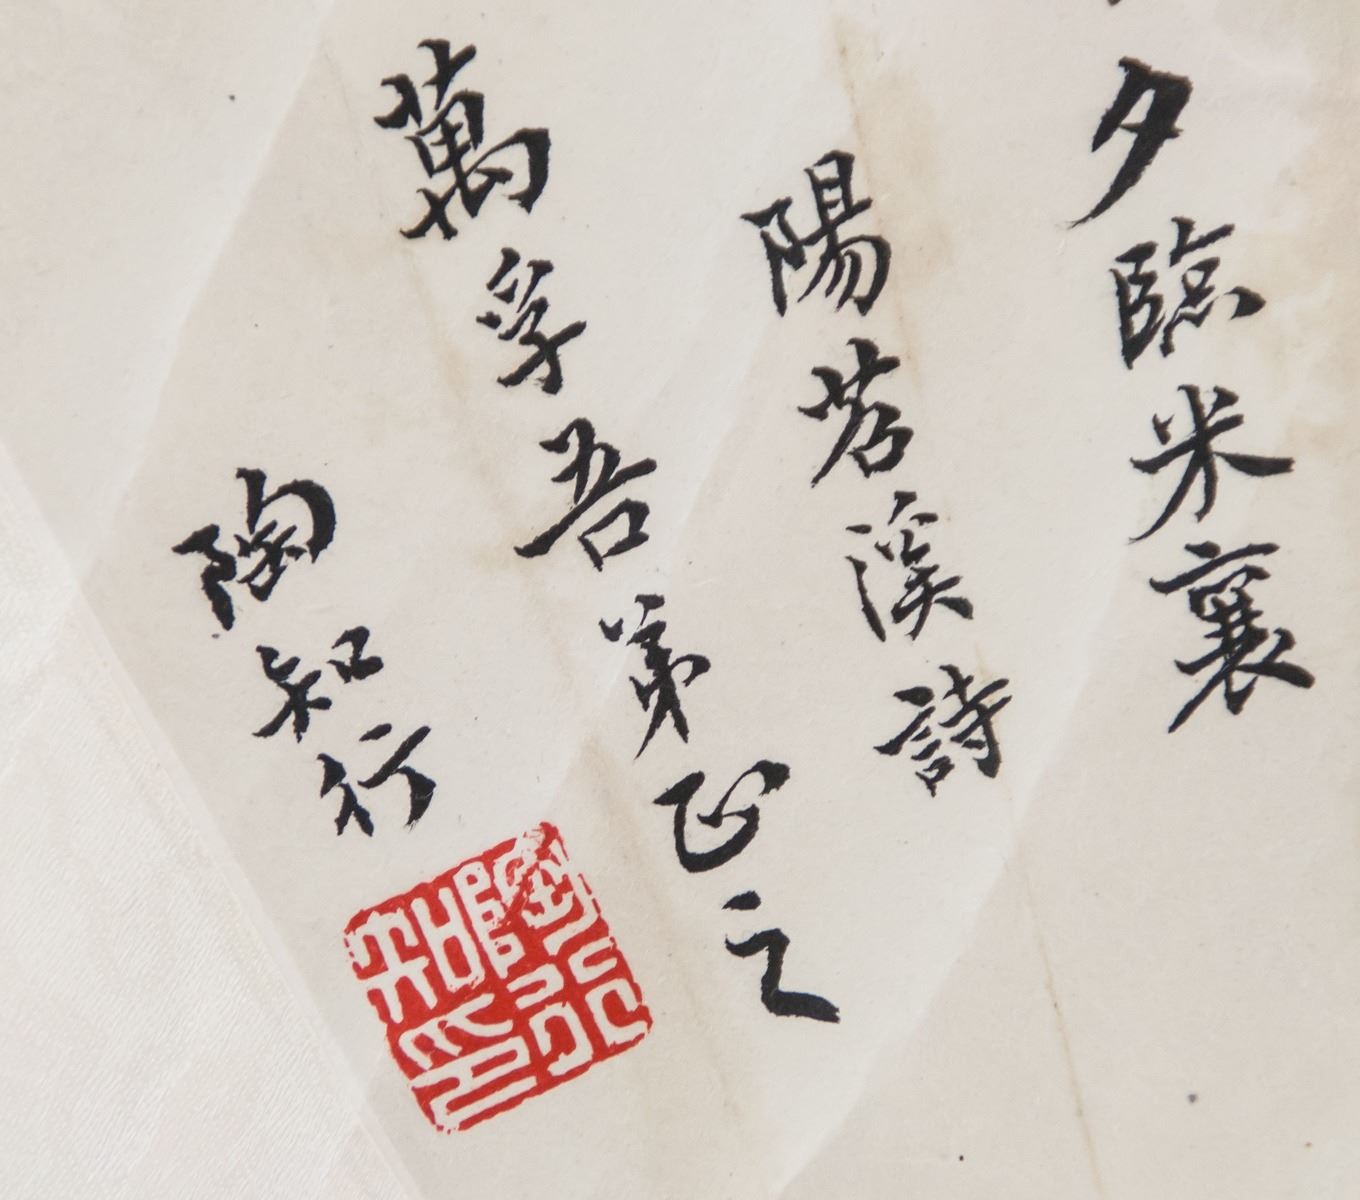 夕臨米襄
陽苕溪詩
萬孚吾弟正之
陶知行